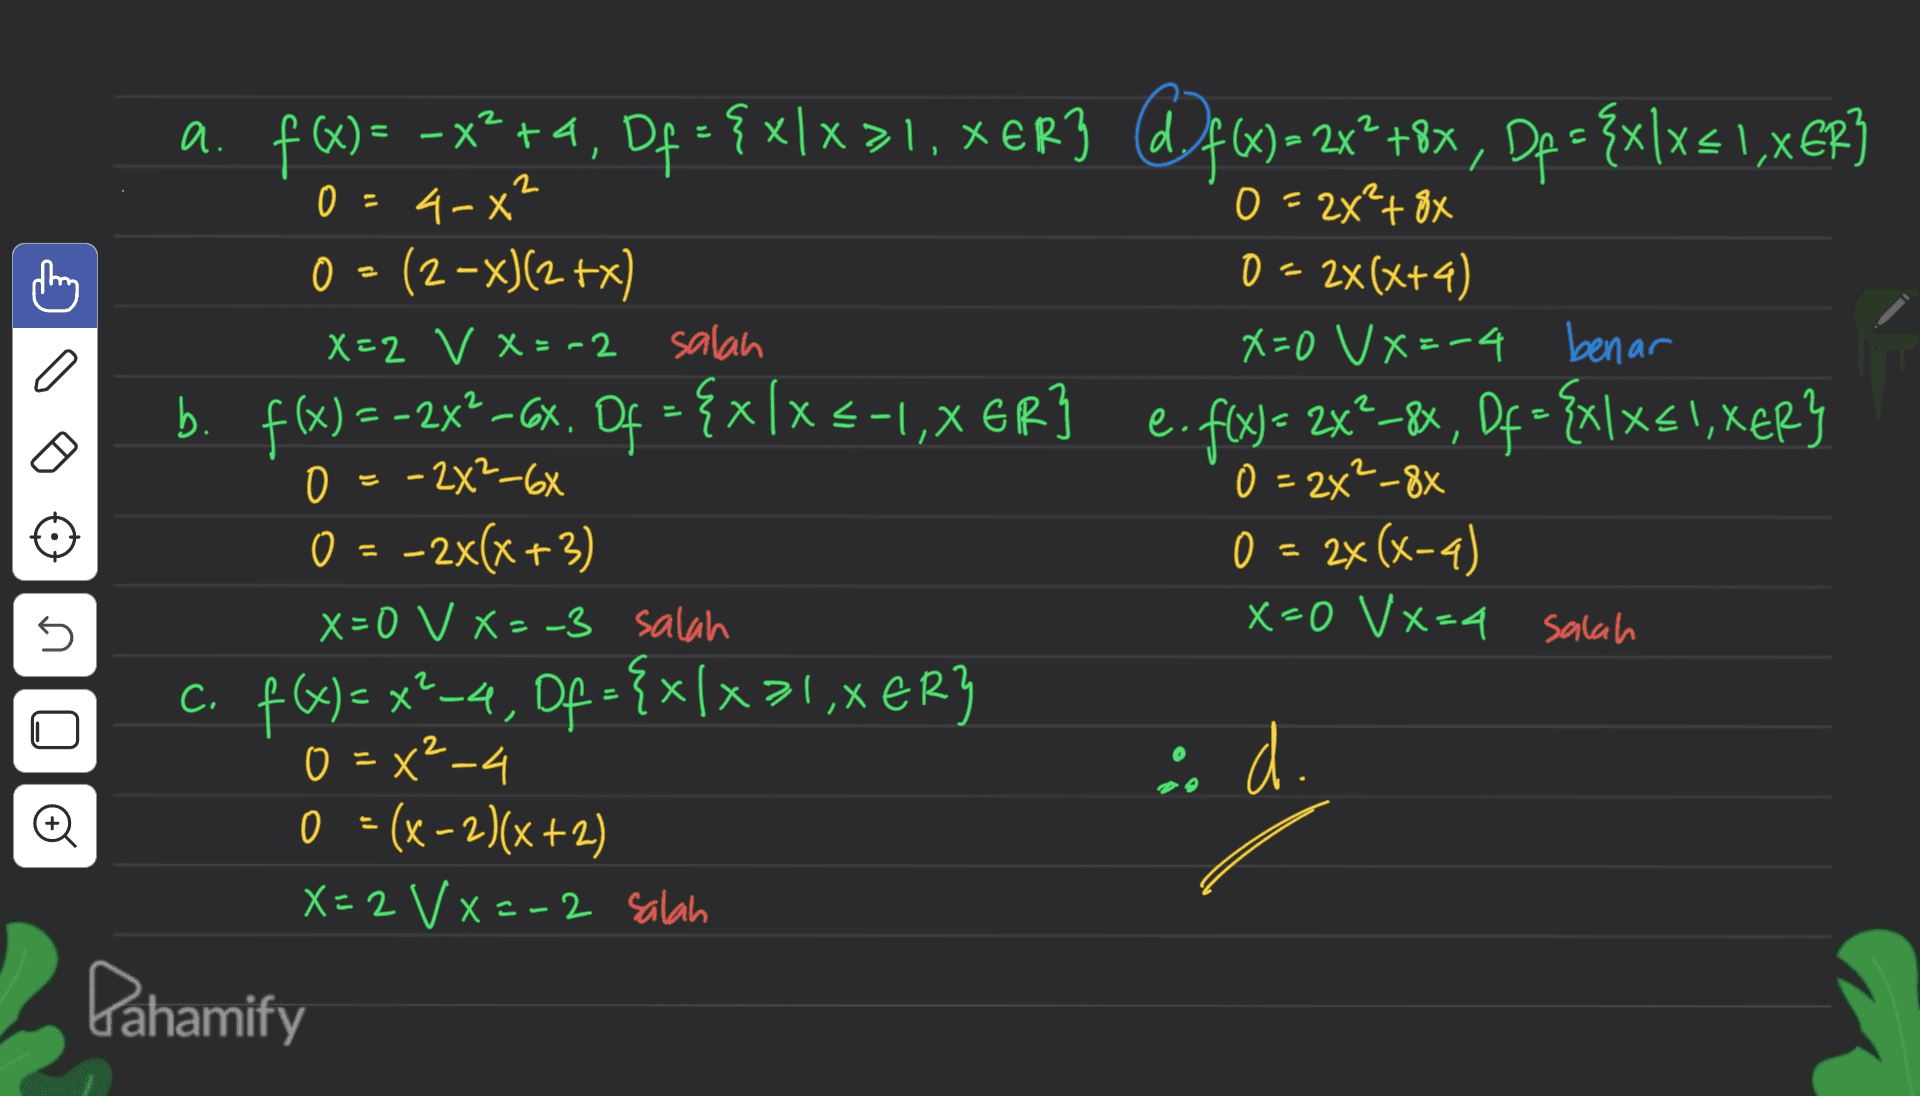 a. f(x) = -x² + 4, Df = {x|x ≥ 1, x ∈ R}
0 = 4 - x²
0 = (2 - x)(2 + x)
x = 2 V x = -2 salah
b. f(x) = -2x² - 6x, Df = {x|x ≤ -1, x ∈ R}
0 = -2x² - 6x
0 = -2x(x + 3)
x = 0 V x = -3 salah
c. f(x) = x² - 4, Df = {x|x ≥ 1, x ∈ R}
0 = x² - 4
0 = (x - 2)(x + 2)
x = 2 V x = -2 salah
d. f(x) = 2x² + 8x, Df = {x|x ≤ 1, x ∈ R}
0 = 2x² + 8x
0 = 2x(x + 4)
x = 0 V x = -4 benar
e. f(x) = 2x² - 8x, Df = {x|x ≤ 1, x ∈ R}
0 = 2x² - 8x
0 = 2x(x - 4)
x = 0 V x = 4 salah
∴ d.
Pahamify